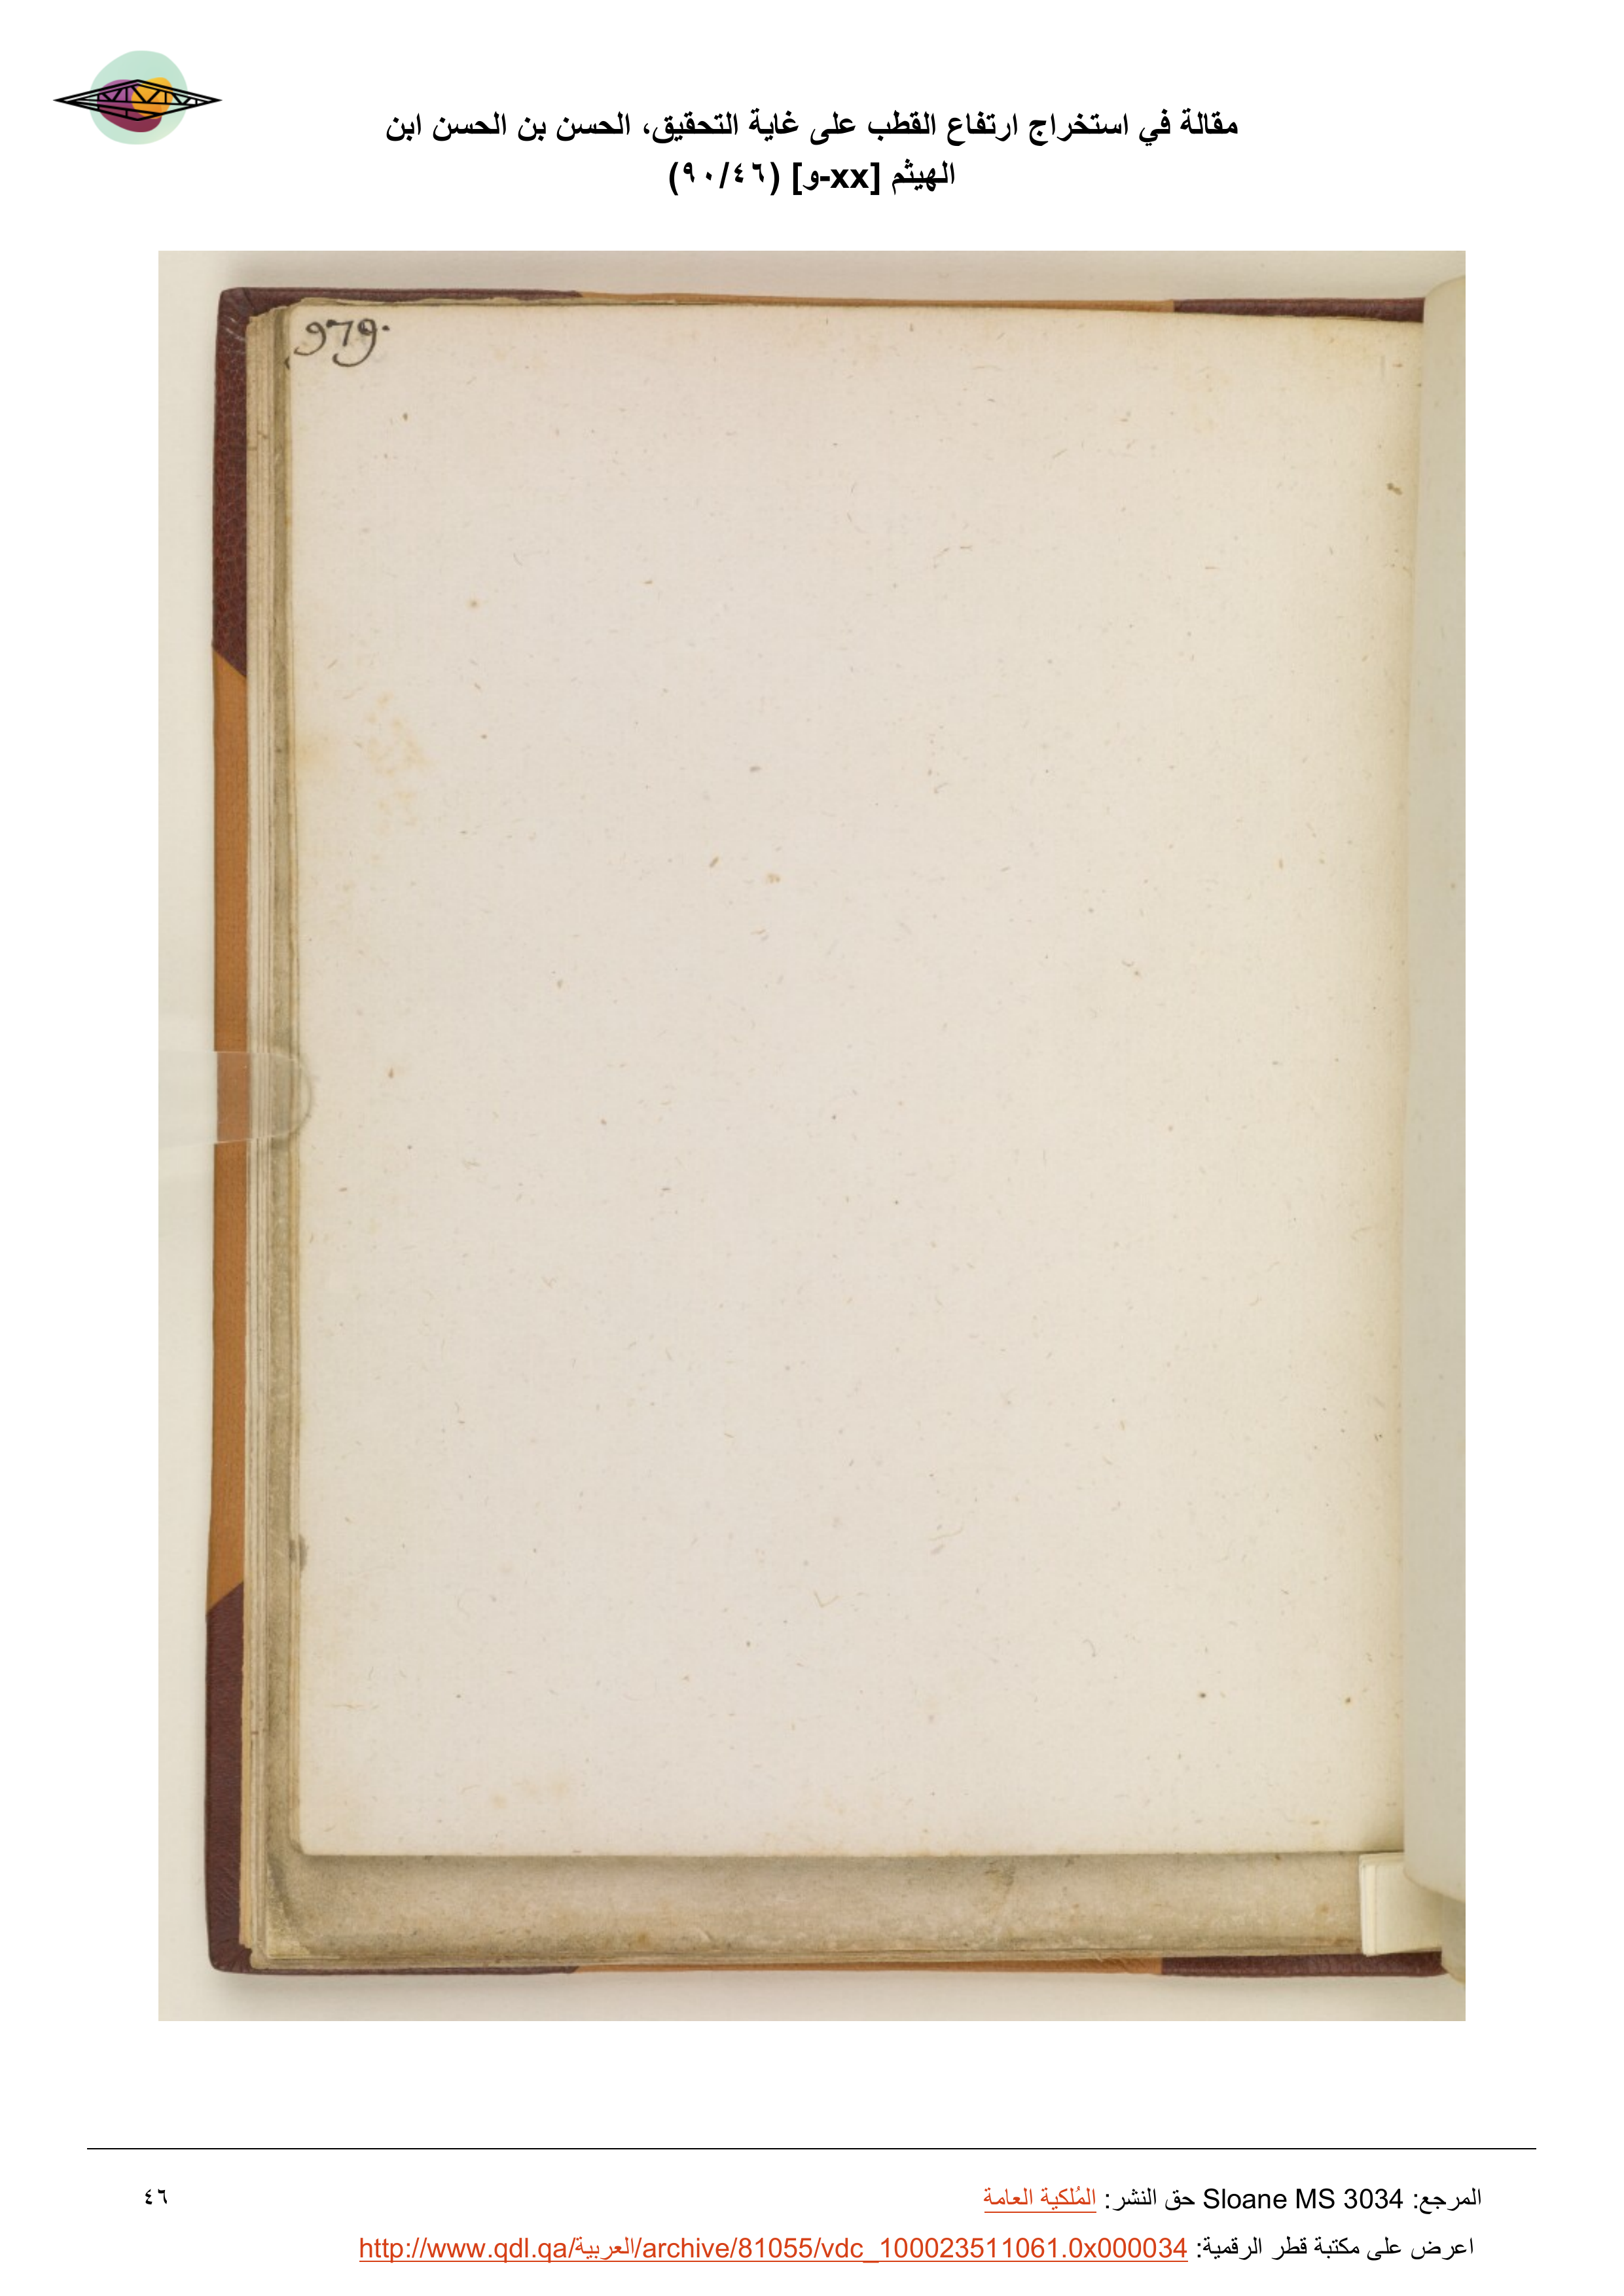 مقالة في استخراج ارتفاع القطب على غاية التحقيق، الحسن بن الحسن ابن
الهيثم [xx-و] (٩٠/٤٦)
979.
المرجع: Sloane MS 3034 حق النشر: المُلكية العامة
٤٦
اعرض على مكتبة قطر الرقمية: http://www.qdl.qa/العربية/archive/81055/vdc_100023511061.0x000034